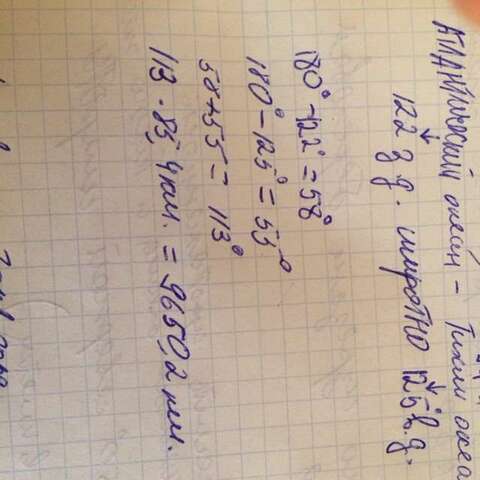 Атлантический океан – Тихий океа
122 з.д. широтно 125° в.д.
180° - 122° = 58°
180° - 125° = 55°
58 + 55 = 113°
113 · 85,4 км. = 9650,2 км.